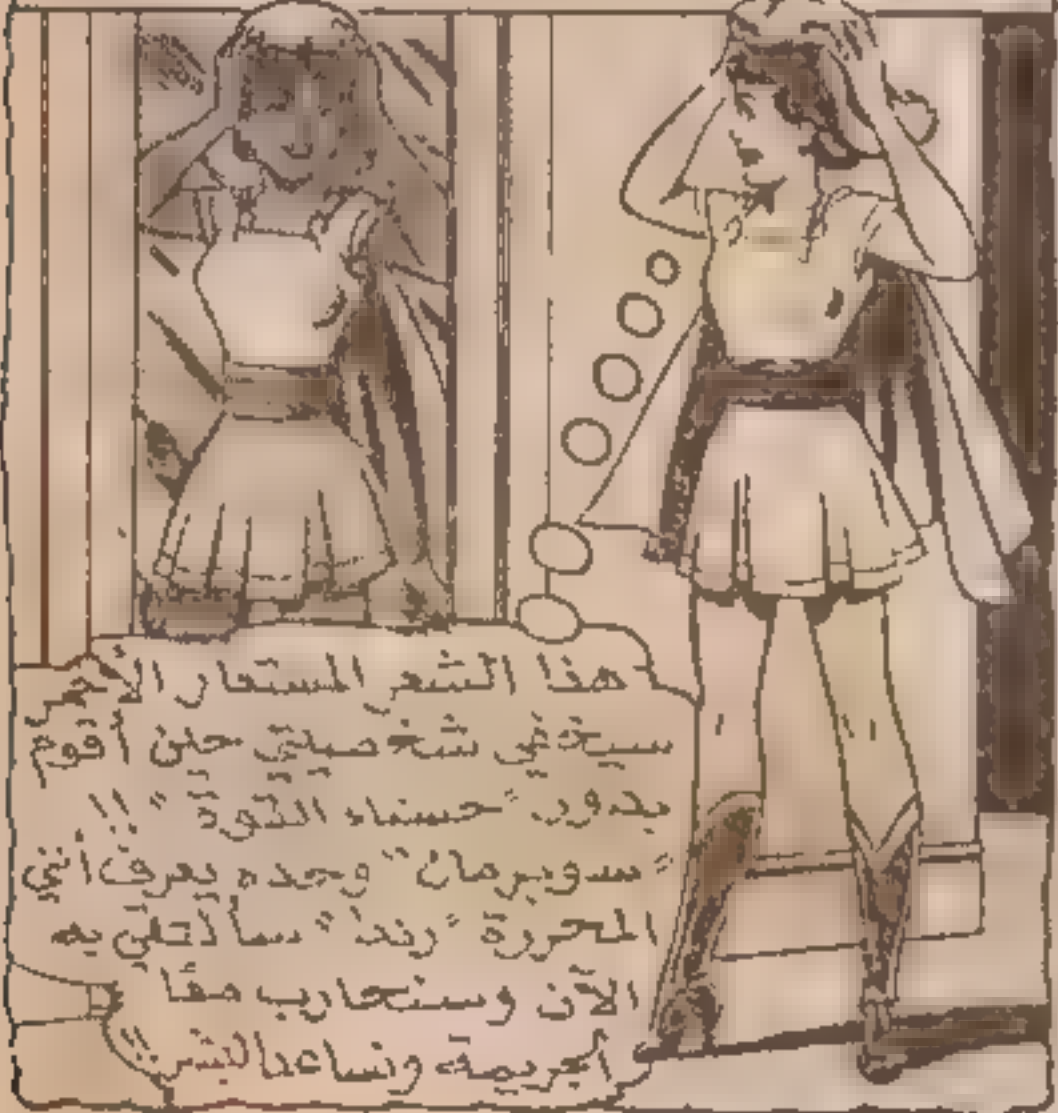 هذا الشعر المستعار الأحمر
سيخفي شخصيتي حين أقوم
بدور "حسناء القوة" !!
"سوبرمان" وحده يعرف أنني
المحررة "رندا" سألتقي به
الآن وسنحارب معًا
الجريمة ونساعد البشر !!